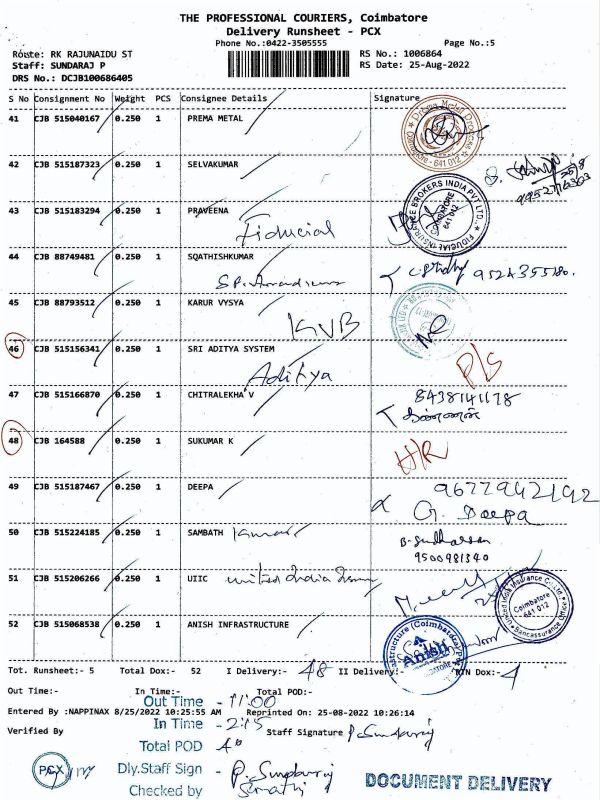 THE PROFESSIONAL COURIERS, Coimbatore
Delivery Runsheet - PCX
Phone No.:0422-3505555 Page No.:5
Route: RK RAJUNAIDU ST RS No.: 1006864
Staff: SUNDARAJ P RS Date: 25-Aug-2022
DRS No.: DCJB100686405
S No Consignment No Weight PCS Consignee Details Signature
41 CJB 515040167 0.250 1 PREMA METAL
42 CJB 515187323 0.250 1 SELVAKUMAR
43 CJB 515183294 0.250 1 PRAVEENA
Fiducial
FIDUCIAL INSURANCE BROKERS INDIA PVT LTD.,
COIMBATORE
641 012
44 CJB 88749481 0.250 1 SQATHISHKUMAR
9524355180.
45 CJB 88793512 0.250 1 KARUR VYSYA
KVB
46 CJB 515156341 0.250 1 SRI ADITYA SYSTEM
Aditya
P/S
47 CJB 515166870 0.250 1 CHITRALEKHA V
8438141178
48 CJB 164588 0.250 1 SUKUMAR K
H/R
49 CJB 515187467 0.250 1 DEEPA
9677942192
G. Deepa
50 CJB 515224185 0.250 1 SAMBATH Kumar
B. Sudharsan
9500981340
51 CJB 515206266 0.250 1 UIIC United India
United India Insurance Co. Ltd.
Coimbatore
641 012
Bancassurance Office
52 CJB 515068538 0.250 1 ANISH INFRASTRUCTURE
Anish
Tot. Runsheet:- 5 Total Dox:- 52 I Delivery:- 48 II Delivery:- RTN Dox:- 4
Out Time:- In Time:- Total POD:-
Out Time - 11:00
Entered By :NAPPINAX 8/25/2022 10:25:55 AM Reprinted On: 25-08-2022 10:26:14
In Time - 2:15
Verified By Staff Signature P. Sundaraj
Total POD
PCX
Dly.Staff Sign - P. Sundaraj
Checked by
DOCUMENT DELIVERY